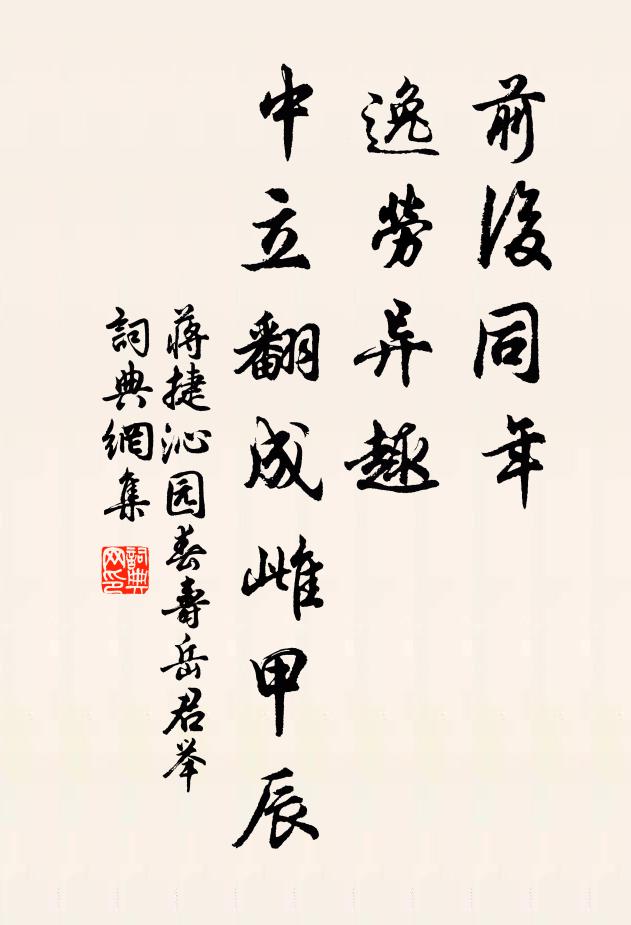 前後同年
逸勞异趣
中立翻成雌甲辰
蒋捷沁园春壽岳君举
詞典網集
詞典
网印